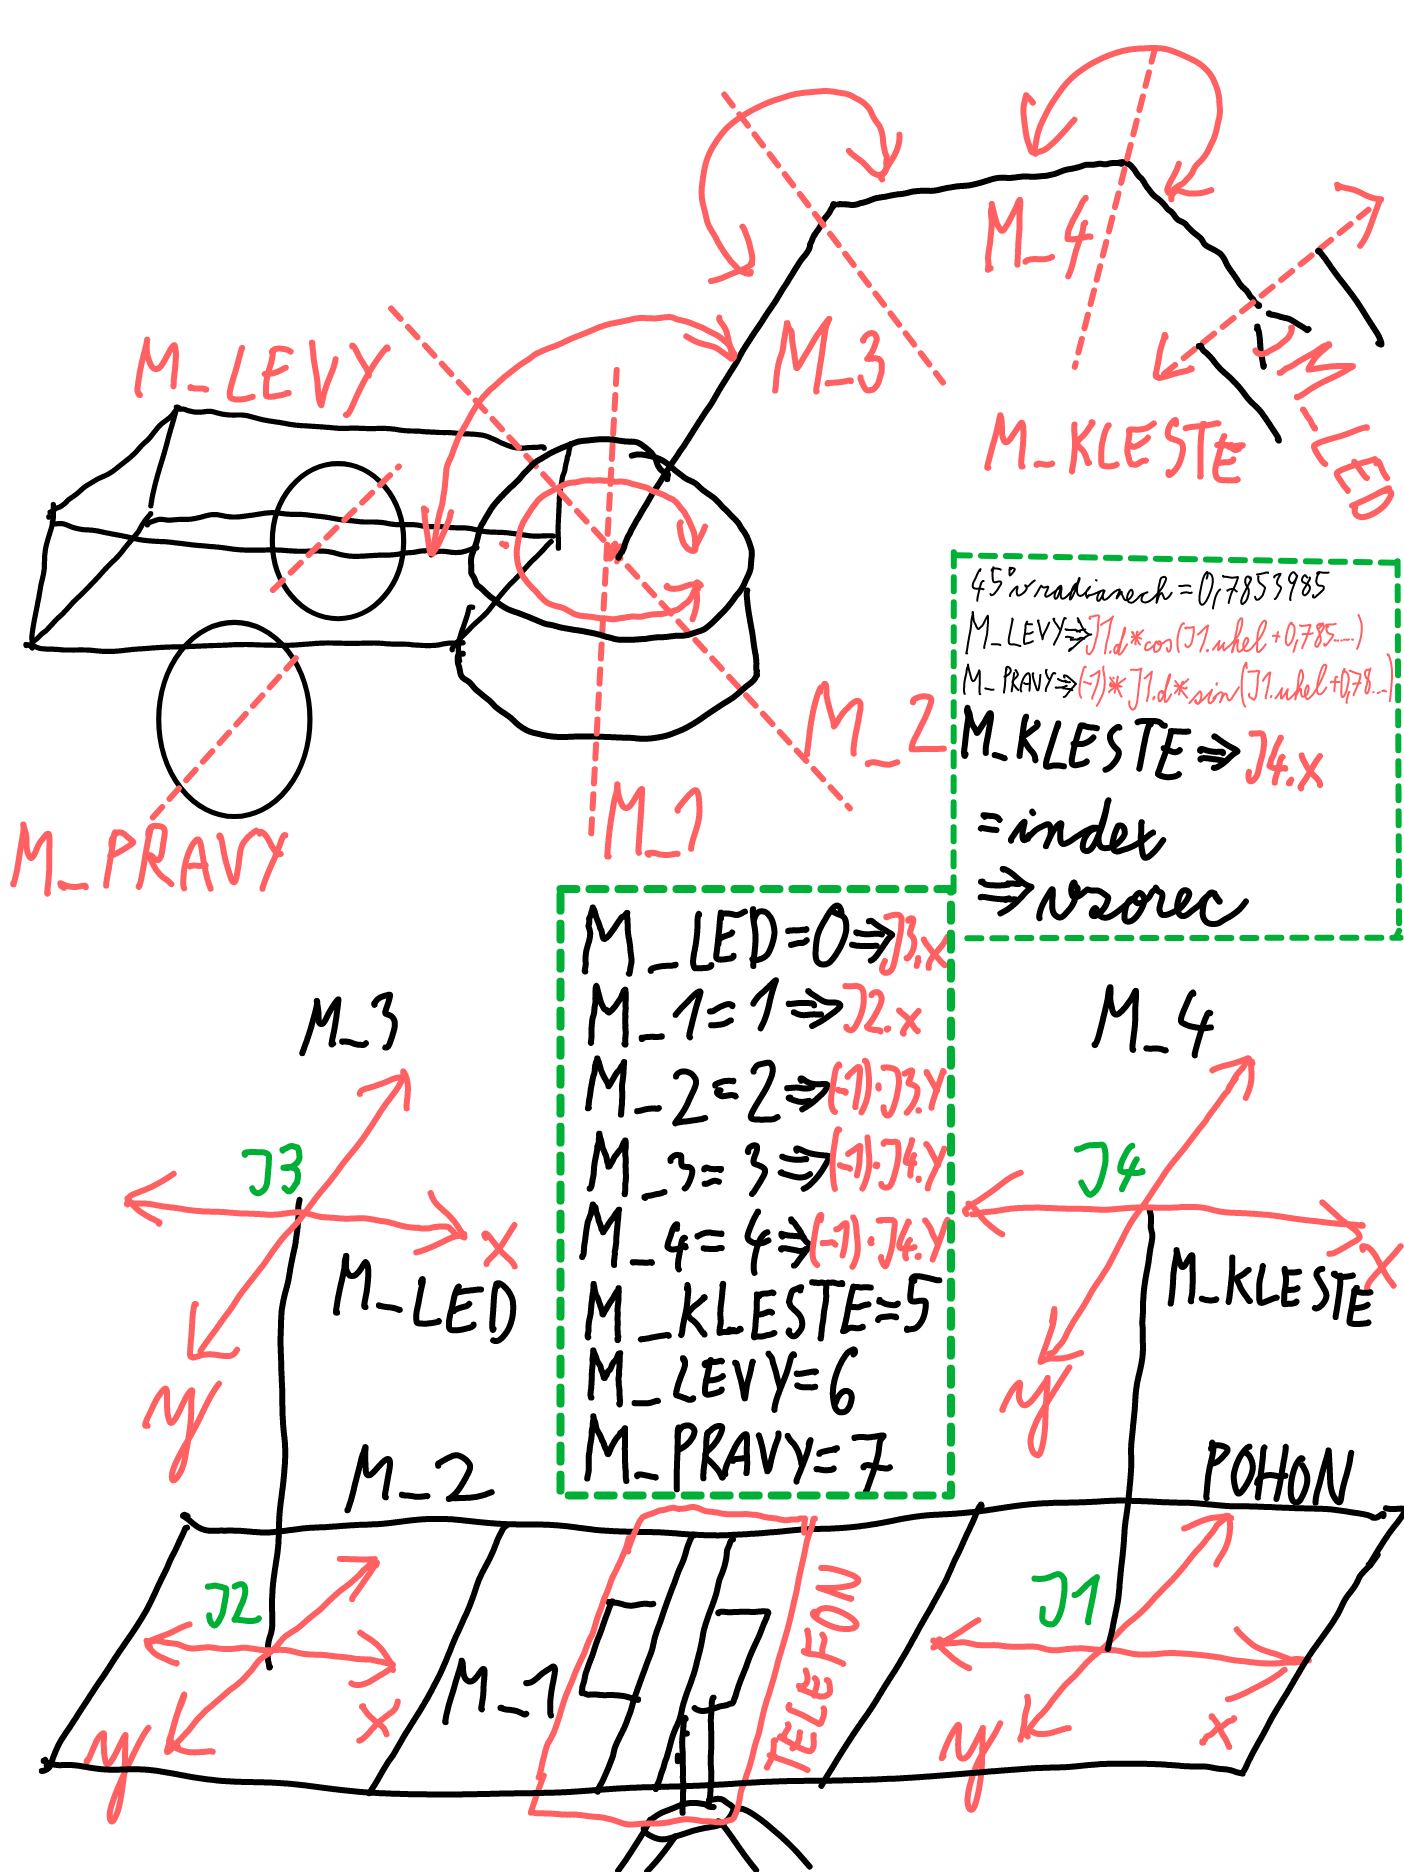 M_LEVY
M_3
M_4
M_KLESTE
M_LED
M_PRAVY
M_1
M_2
45° v radianech = 0,7853985
M_LEVY⇒J1.d*cos(J1.uhel+0,785....)
M_PRAVY⇒(-1)*J1.d*sin(J1.uhel+0,78...)
M_KLESTE⇒J4.x
=index
⇒vzorec
M_LED=0⇒J3.x
M_1=1⇒J2.x
M_2=2⇒(-1)·J3.Y
M_3=3⇒(-1)·J4.Y
M_4=4⇒(-1)·J4.Y
M_KLESTE=5
M_LEVY=6
M_PRAVY=7
M_3
J3
x
M_LED
y
M_2
M_4
J4
x
M_KLESTE
y
POHON
J2
x
y
M_1
TELEFON
J1
x
y